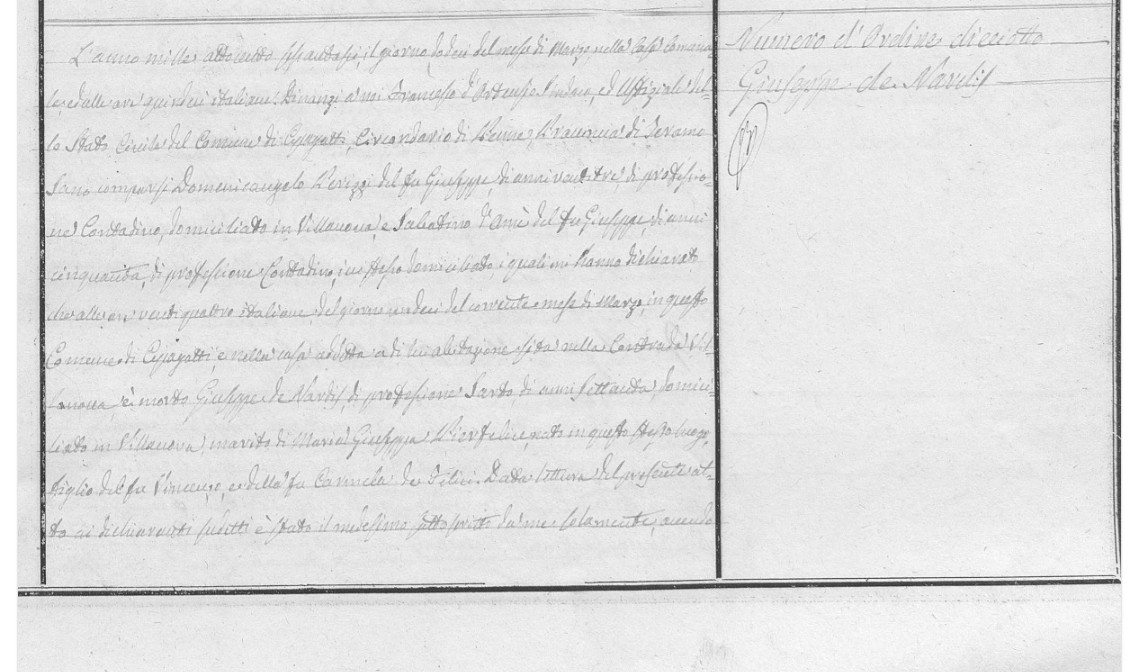 L'anno mille ottocento sessantasei, il giorno dodeci del mese di Marzo nella Casa Comuna-
le, ed alle ore quindeci italiane. Dinanzi a noi Francesco d'Ortenzio Sindaco, ed Uffiziale del-
lo Stato Civile del Comune di Cepagatti, Circondario di Penne, Provincia di Teramo
Sono comparsi Domenicangelo Perizzi del fu Giuseppe di anni ventitre di professio-
ne Contadino, domiciliato in Villanova, e Sabatino d'Amè del fu Giuseppe, di anni
cinquanta, di professione Contadino, ivi stesso domiciliato, i quali mi hanno dichiarato
che alle ore venti quattro italiane del giorno undeci del corrente mese di Marzo, in questo
Comune di Cepagatti, e nella casa addetta a di lui abitazione sita nella Contrada Vil-
lanova è morto Giuseppe de Nardis, di professione Sarto, di anni settanta, domici-
liato in Villanova, marito di Maria Giuseppa nato in questo stesso luogo,
figlio del fu Vincenzo, e della fu Carmela de Felici. Data lettura del presente at-
to ai dichiaranti sudetti è stato il medesimo sottoscritto da me solamente, avendo
Numero d'Ordine dieciotto
Giuseppe de Nardis